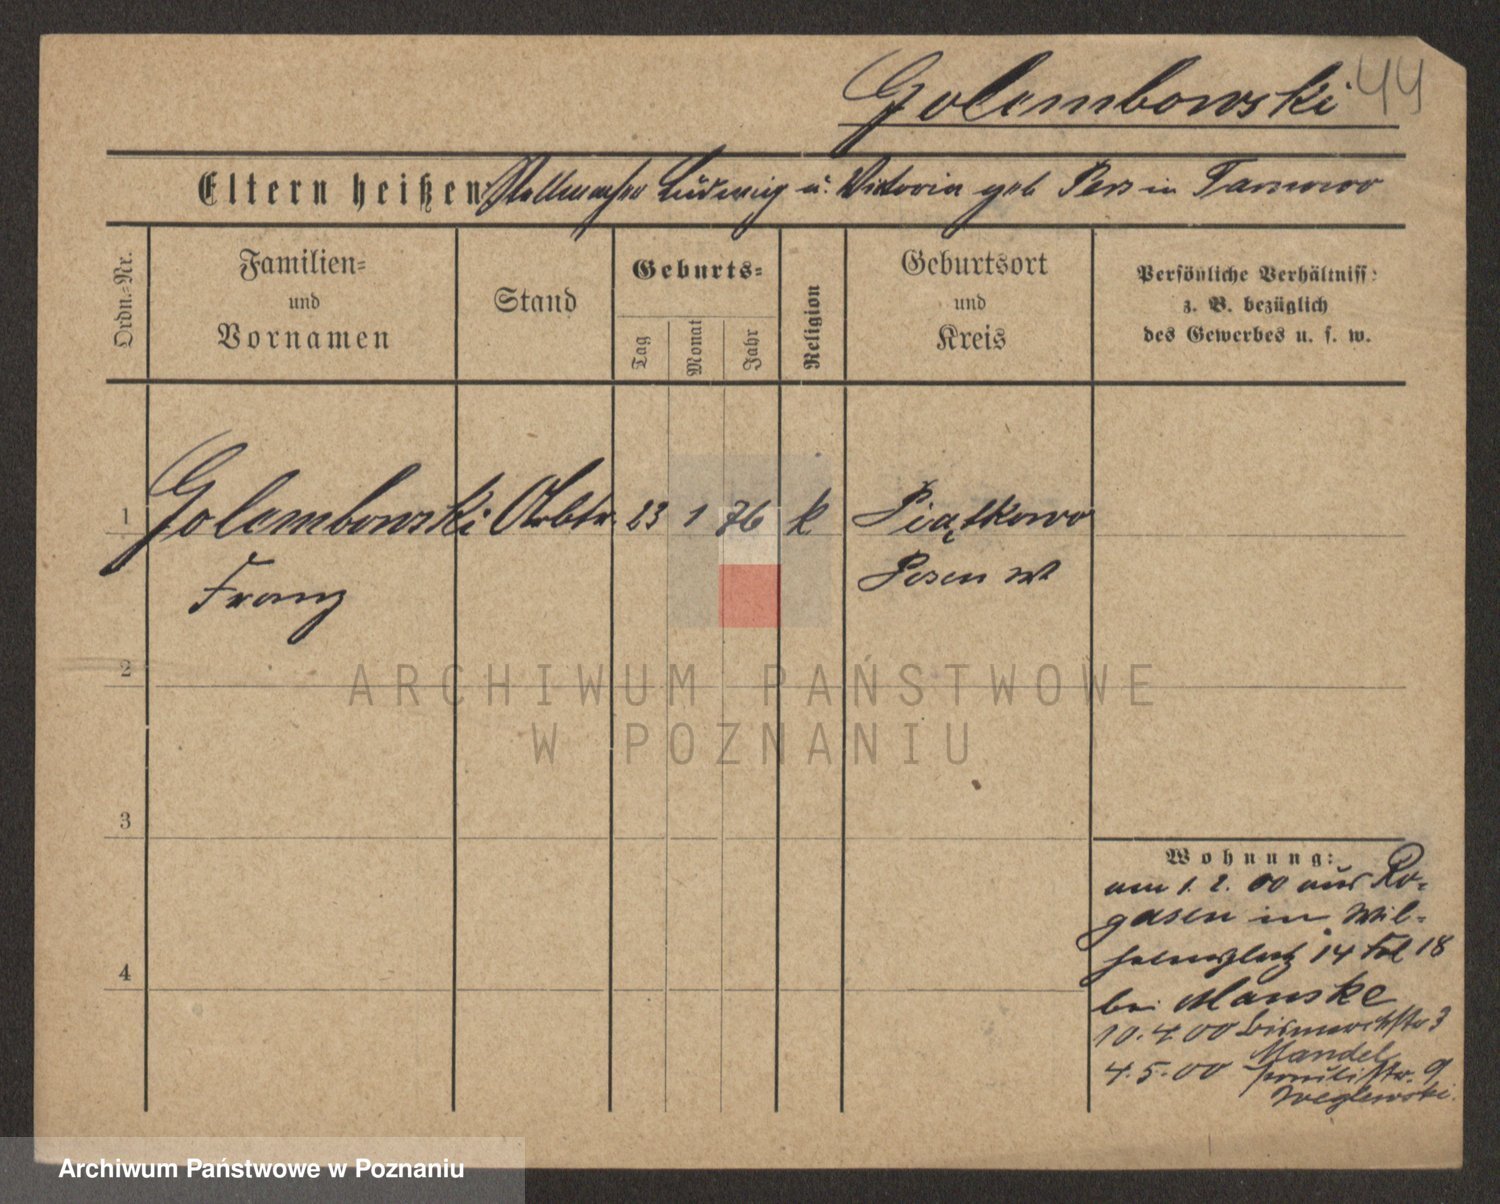 Golembowski 44
Eltern heißen Stellmacher Ludwig u. Victoria geb Pers in Tarnowo
Ordn.-Nr.
Familien-
und
Vornamen
Stand
Geburts-
Tag
Monat
Jahr
Religion
Geburtsort
und
Kreis
Persönliche Verhältniss:
z. B. bezüglich
des Gewerbes u. s. w.
1 Golembowski Arbtr. 23 1 76 k Piątkowo
Franz Posen W
2
3
4
Wohnung:
am 1. 2. 00 aus Ro-
gasen in Wil-
helmsplatz 14 18
bei Manske
10.4.00 Bismarckstr 3
Mandel
4.5.00 Paulistr. 9
Weglewski.
ARCHIWUM PAŃSTWOWE
W POZNANIU
Archiwum Państwowe w Poznaniu